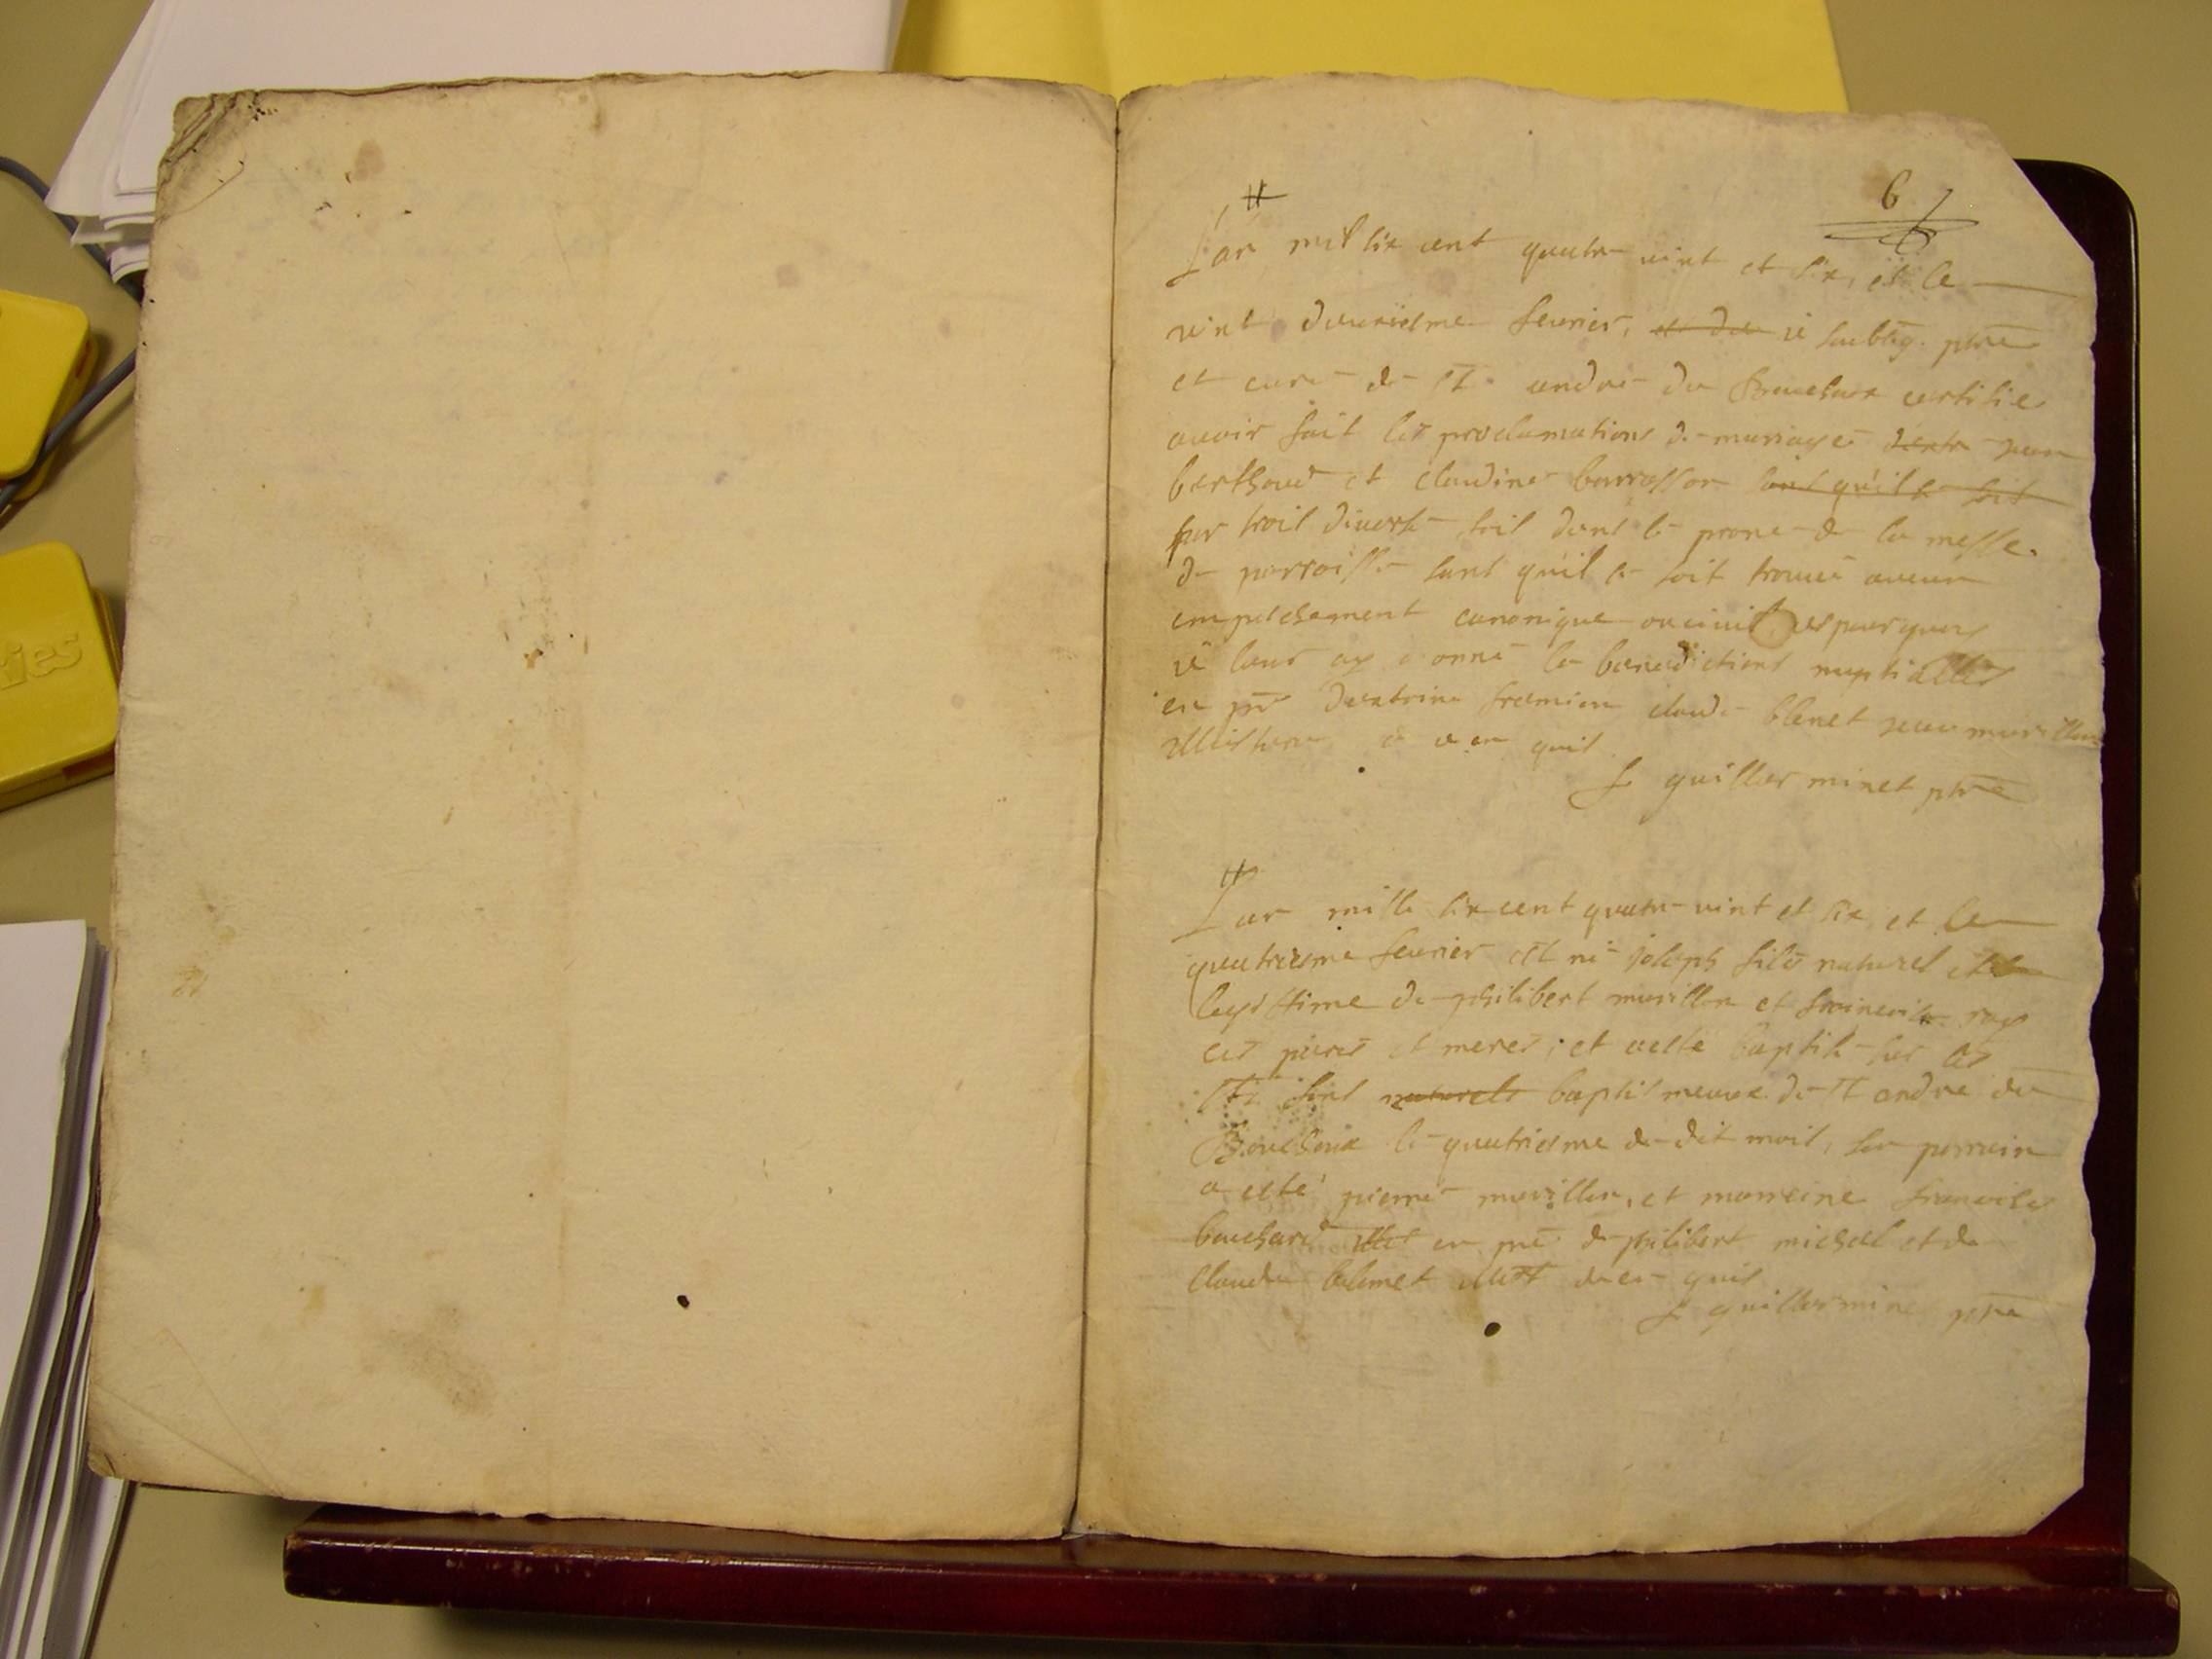 6
Lan mil six cent quatre vint et six, et le
vint deuxiesme feurier, et de ie soubsig. ptre
et cure de St. andre du Bouchoux certifie
auoir fait les proclamations de mariage entre jean
berthoud et claudine borrasson sans qu'il se soit
par trois diuerse fois dans le prone de la messe
de parroisse sans quil se soit trouué aucun
empeschement canonique ou ciuil cespourquoy
ie leur ay donné la benedictions nuptialles
en pnt fremion claude blenet jean marillon
quil
guillerminet ptre
Lan mille six cent quatre vint et six, et le
quatriesme feurier est né joseph fils naturel et
legittime de philibert marillon et francoise ray
ces peres et meres, et a esté baptisé sur les
Sts fons naturels baptismeaux de St andre du
Bouchoux le quatriesme du dit mois, son parrain
a esté pierre marillon, et marreine francoise
bouchard en pnt de philibert michel et de
claude blenet quil
guillerminet ptre
ries